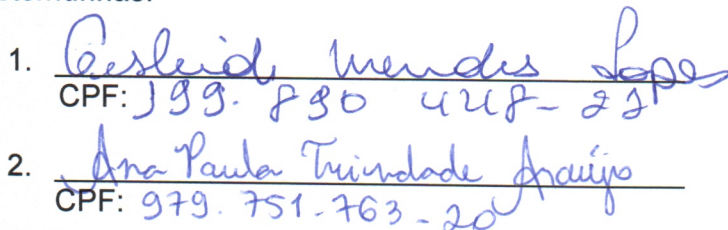 1. Gesleide Mendes Lopes
CPF: 199. 890 448-22
2. Ana Paula Trindade Araújo
CPF: 979. 751-763-20